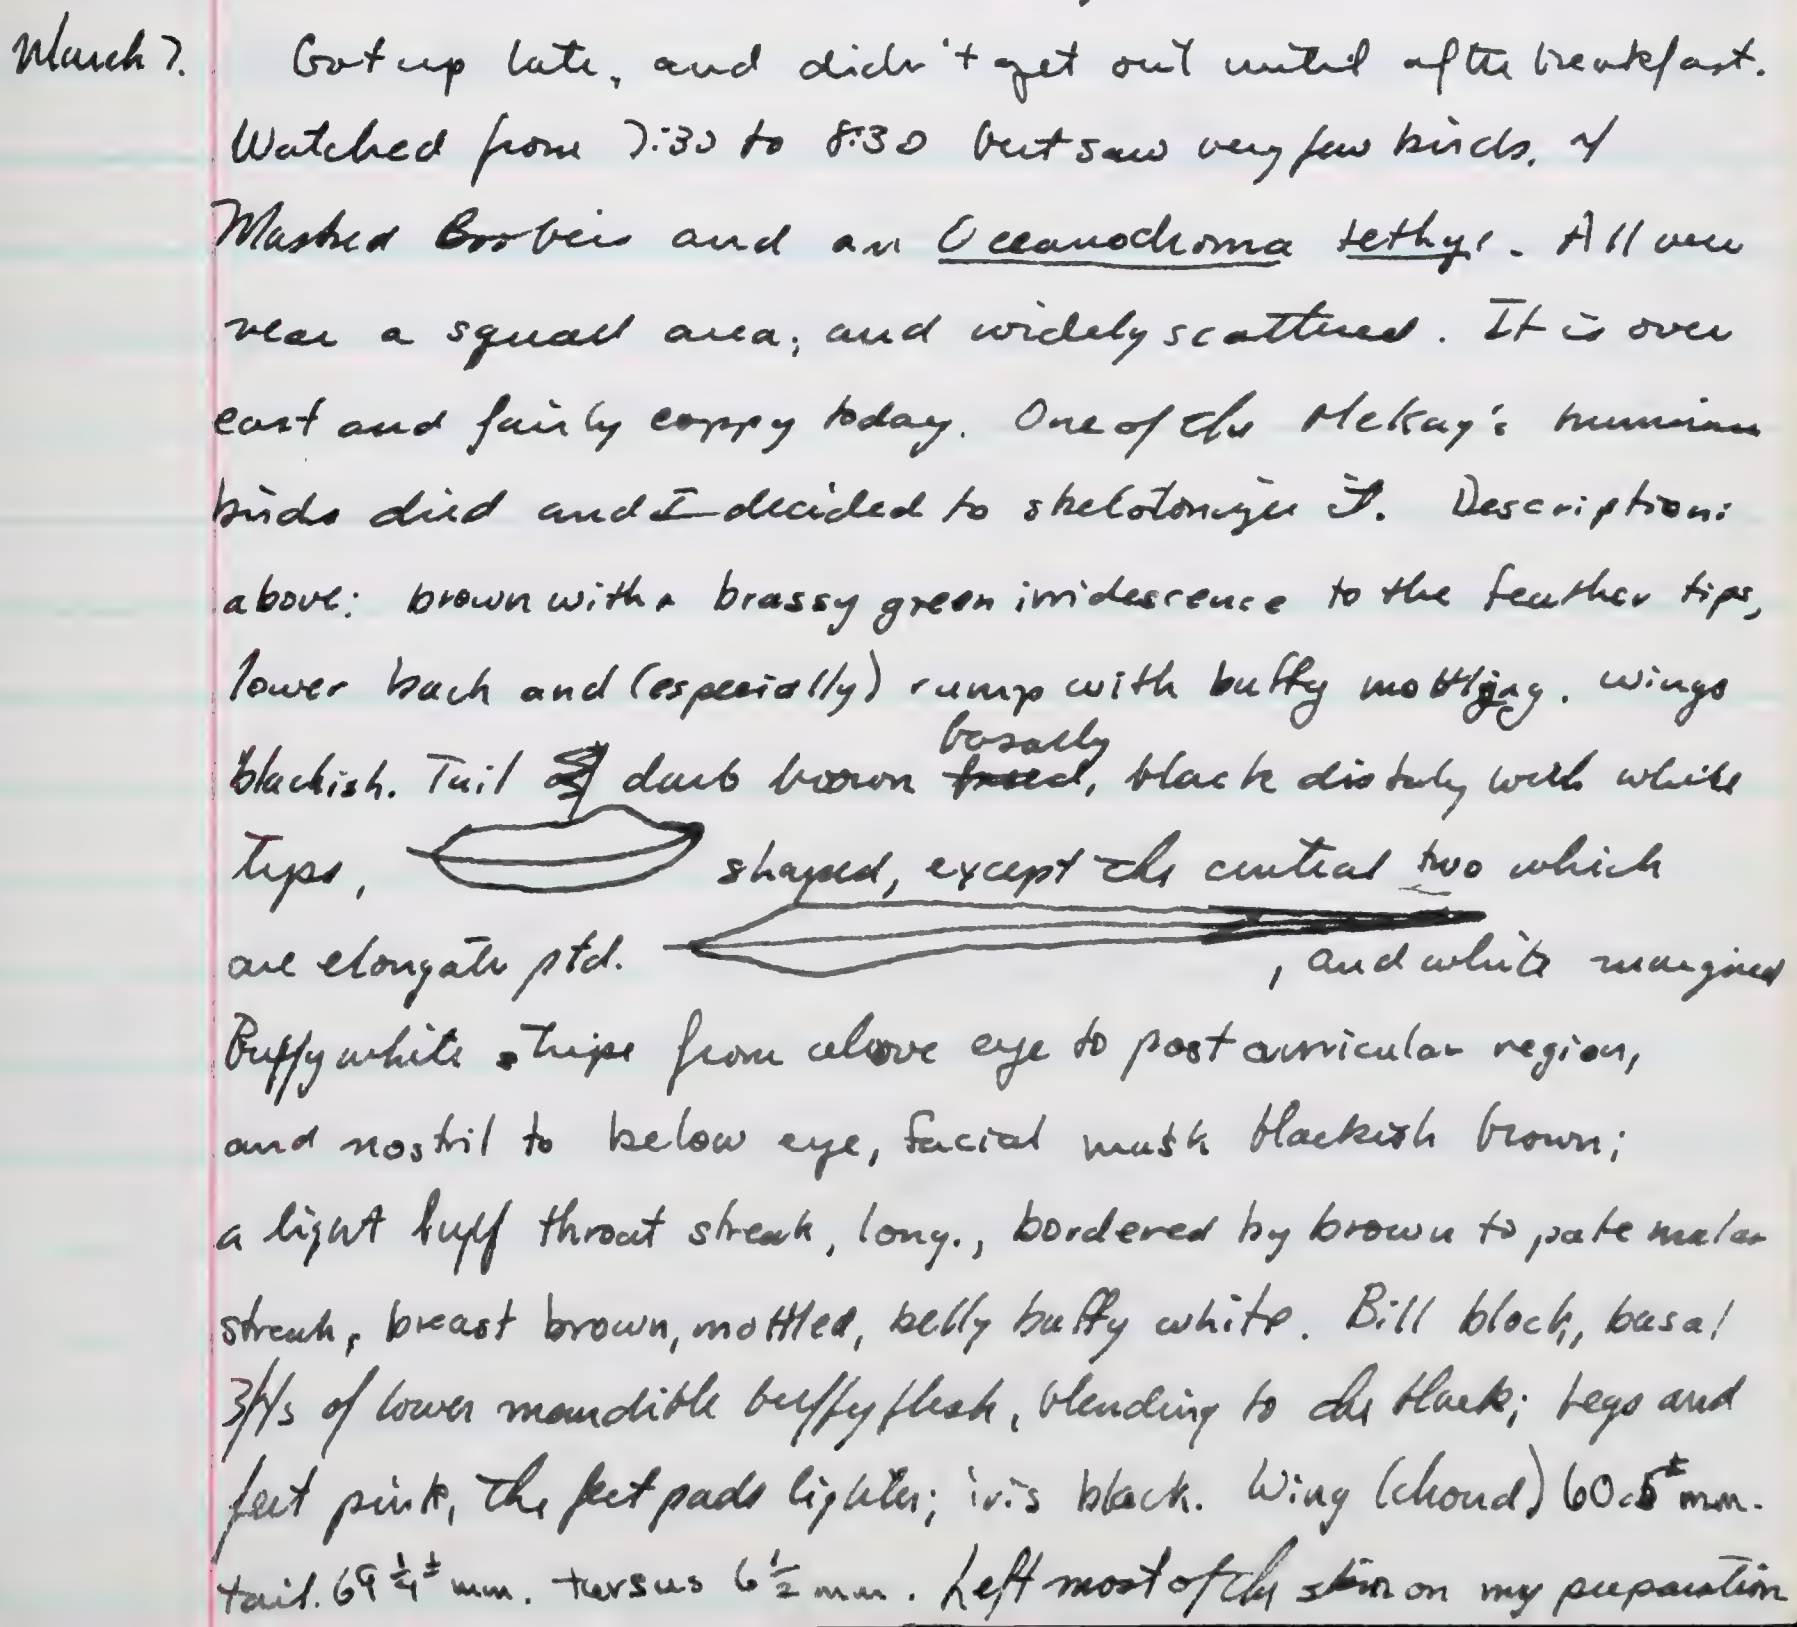 March 7. Got up late, and didn't get out until after breakfast.
Watched from 7:30 to 8:30 but saw very few birds. 4
Masked Boobies and an Oceanodroma tethys. All were
near a squall area, and widely scattered. It is over
cast and fairly coppy today. One of the McKay's hummin
birds died and I decided to skelotonize it. Description:
above: brown with a brassy green irridescence to the feather tips,
lower back and (especially) rump with buffy mottling. wings
blackish. Tail dark brown basally, black distaly with white
tips, shaped, except the central two which
are elongate ptd. , and white margined
Buffy white stripe from above eye to post aurricular region,
and nostril to below eye, facial mask blackish brown;
a light buff throat streak, long., bordered by brown to pale malar
streak, breast brown, mottled, belly buffy white. Bill black, basal
3/4s of lower mandible buffy flesh, blending to the black; legs and
feet pink, the feet pads lighter; iris black. Wing (chord) 60.5± mm.
tail. 69 1/4± mm. tarsus 6 1/2 mm. Left most of the skin on my preparation